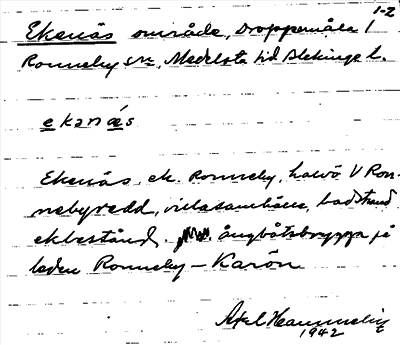 1-2
Ekenäs område, Droppemåla 1
Ronneby sn, Medelsta hd Blekinge l.
ekanäs
Ekenäs, ek. Ronneby, halvö V Ron-
nebyredd, villasamhälle, badstrand
ekbestånd. ångbåtsbrygga på
leden Ronneby – Karön
Axel Hammneby
1942